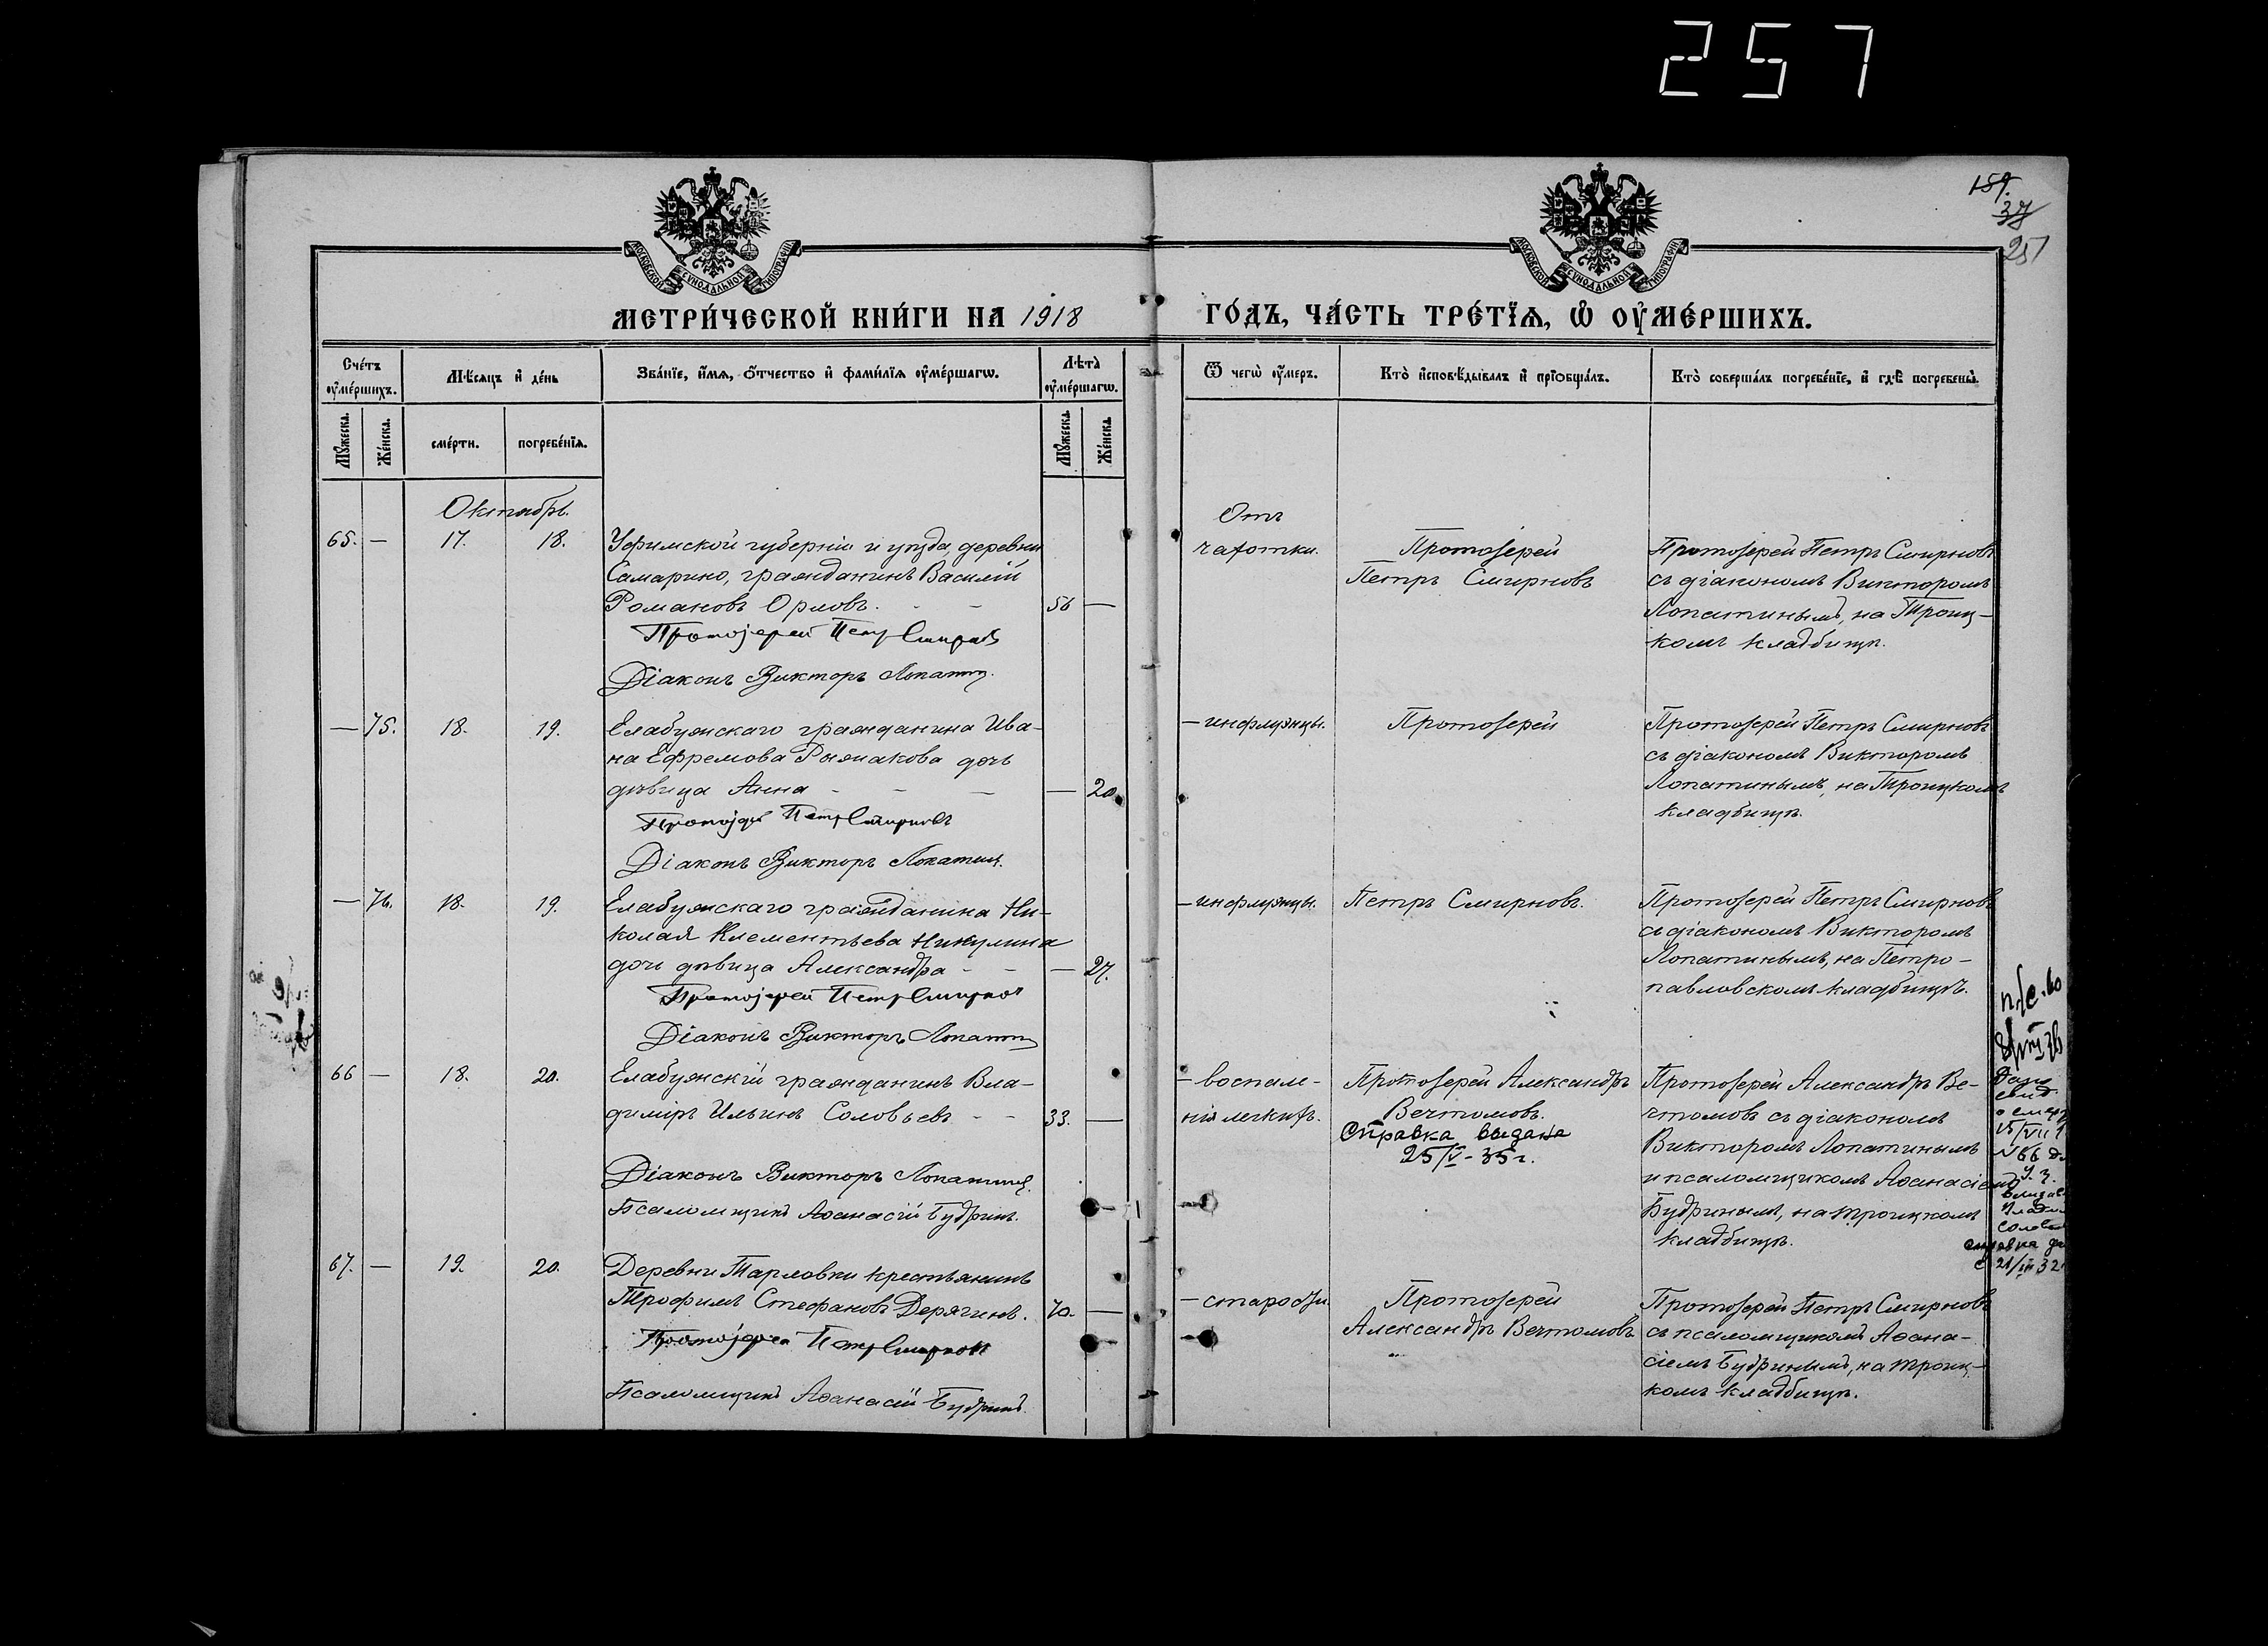 257
159.
37
251
МОСКОВСКОЙ СѴНОДАЛЬНОЙ ТИПОГРАФІИ
МОСКОВСКОЙ СѴНОДАЛЬНОЙ ТИПОГРАФІИ
МЕТРИ́ЧЕСКОЙ КНИ́ГИ НА 1918 ГО́ДЪ, ЧА́СТЬ ТРЕ́ТЇѦ, Ѡ҆ ОУ҆МЕ́РШИХЪ.
Сче́тъ оу҆ме́ршихъ.
Мѣ́сѧцъ и҆ де́нь
Зва́нїе, и҆́мѧ, ѻ҆́тчество и҆ фами́лїѧ оу҆ме́ршагѡ.
Лѣта̀ оу҆ме́ршагѡ.
Ѿ чегѡ̀ оу҆́меръ.
Кто̀ и҆сповѣ́дывалъ и҆ прїѡбща́лъ.
Кто̀ соверша́лъ погребе́нїе, и҆ гдѣ̀ погребены̀.
Мꙋ́жеска. Же́нска.
сме́рти. погребе́нїѧ.
Мꙋ́жеска. Же́нска.
Октябрь.
65. — 17. 18. Уфимской губерніи и уѣзда, деревни
Самарино, гражданинъ Василій
Романовъ Орловъ. - - 56 —
Протоіерей Петръ Смирновъ
Діаконъ Викторъ Лопатин.
Отъ
чахотки.
Протоіерей
Петръ Смирновъ
Протоіерей Петръ Смирновъ
съ діакономъ Викторомъ
Лопатинымъ, на Троиц-
комъ кладбищѣ.
— 75. 18. 19. Елабужскаго гражданина Ива-
на Ефремова Рыжакова дочь
дѣвица Анна - - — — 20.
Протоіер Петръ Смирновъ
Діаконъ Викторъ Лопатин.
— инфлуэнцы.
Протоіерей
Протоіерей Петръ Смирновъ
съ діакономъ Викторомъ
Лопатинымъ, на Троицкомъ
кладбищѣ.
— 76. 18. 19. Елабужскаго гражданина Ни-
колая Клементьева Никулина
дочь дѣвица Александра - - — 27.
Протоіерей Петръ Смирнов
Діаконъ Викторъ Лопатин
— инфлуэнцы.
Петръ Смирновъ.
Протоіерей Петръ Смирновъ
съ діакономъ Викторомъ
Лопатинымъ, на Петро-
павловскомъ кладбищѣ.
66 — 18. 20. Елабужскій гражданинъ Вла-
димиръ Ильинъ Соловьевъ - - 33. —
Діаконъ Викторъ Лопатин.
Псаломщикъ Аѳанасій Будринъ.
— воспале-
нія легкихъ.
Протоіерей Александръ
Вечтомовъ.
Справка выдана
25/V-35 г.
Протоіерей Александръ Ве-
чтомовъ съ діакономъ
Викторомъ Лопатинымъ
и псаломщикомъ Аѳанасіемъ
Будринымъ, на Троицкомъ
кладбищѣ.
свид.
о смер
15/VII
N 66
справка
21/III 32
67. — 19. 20. Деревни Тарловки крестьянинъ
Трофимъ Стефановъ Дерягинъ. 70. —
Протоіерей Петръ Смирнов
Псаломщикъ Аѳанасій Будринъ.
— старости.
Протоіерей
Александръ Вечтомовъ
Протоіерей Петръ Смирновъ
съ псаломщикомъ Аѳана-
сіемъ Будринымъ, на Троиц-
комъ кладбищѣ.